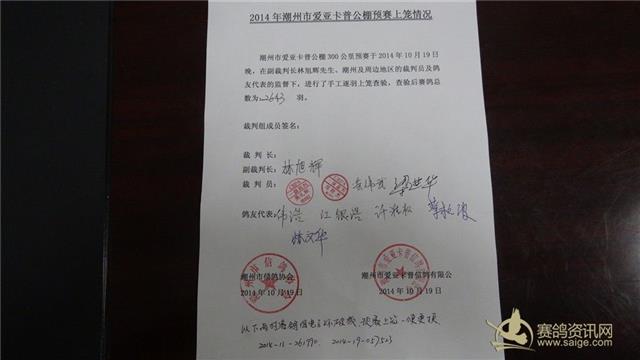 2014年潮州市爱亚卡普公棚预赛上笼情况
潮州市爱亚卡普公棚300公里预赛于2014年10月19日
晚，在副裁判长林旭辉先生、潮州及周边地区的裁判员及鸽
友代表的监督下，进行了手工逐羽上笼查验，查验后赛鸽总
数为2643羽。
裁判组成员签名：
裁判长：
副裁判长：林旭辉
裁判员：
鸽友代表：伟浩 江银浩
林文华
潮州市信鸽协会 潮州市爱亚卡普信鸽有限公
2014年10月19日 2014年10月19日
2014-11-261990 2014-19-057523
赛鸽资讯网
www.saige.com